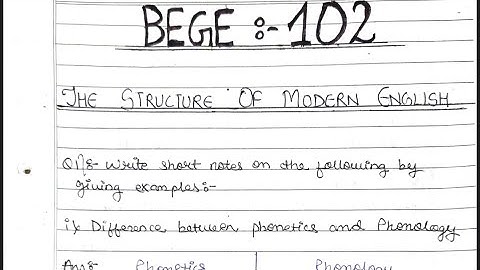 BEGE :- 102
THE STRUCTURE OF MODERN ENGLISH
Q1)8- Write short notes on the following by
giving examples:-
i) Difference between phonetics and Phonology
Ans8- Phonetics Phonology